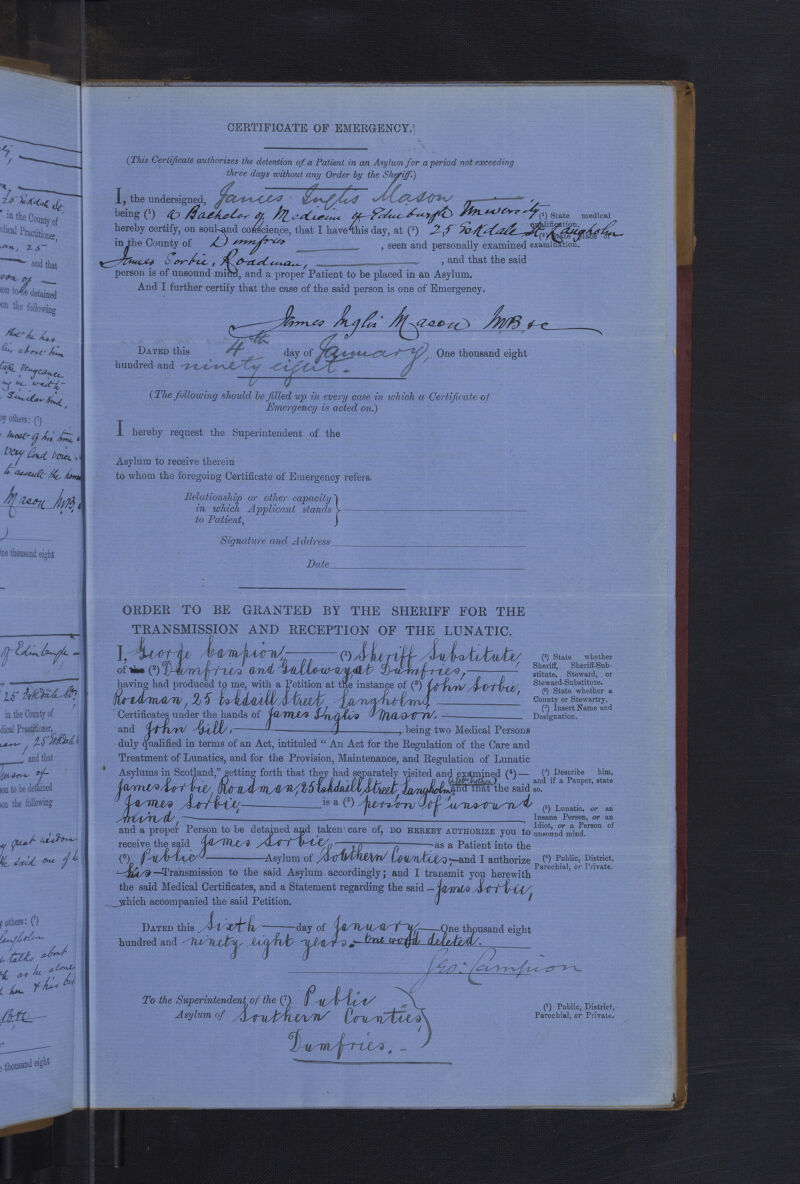 CERTIFICATE OF EMERGENCY.
(This Certificate authorizes the detention of a Patient in an Asylum for a period not exceeding
three days without any Order by the Sheriff.)
I, the undersigned, James Inglis Mason
being (¹) a Bachelor of Medicine of Edinburgh University
hereby certify, on soul and conscience, that I have this day, at (²) 25 Eskdale St. Langholm
in the County of Dumfries, seen and personally examined
James Sorbie, Roadman, and that the said
person is of unsound mind, and a proper Patient to be placed in an Asylum.
And I further certify that the case of the said person is one of Emergency.
(¹) State medical
qualification.
(²) State place of
examination.
James Inglis Mason M.B &c
DATED this 4th day of January, One thousand eight
hundred and ninety eight.
(The following should be filled up in every case in which a Certificate of
Emergency is acted on.)
I hereby request the Superintendent of the
Asylum to receive therein
to whom the foregoing Certificate of Emergency refers.
Relationship or other capacity
in which Applicant stands
to Patient,
Signature and Address
Date
ORDER TO BE GRANTED BY THE SHERIFF FOR THE
TRANSMISSION AND RECEPTION OF THE LUNATIC.
I, George Campion, (¹) Sheriff Substitute,
of the (²) Dumfries and Galloway at Dumfries,
having had produced to me, with a Petition at the instance of (³) John Sorbie,
Roadman, 25 Eskdaill Street, Langholm,
Certificates under the hands of James Inglis Mason,
and John Gill, being two Medical Persons
duly qualified in terms of an Act, intituled "An Act for the Regulation of the Care and
Treatment of Lunatics, and for the Provision, Maintenance, and Regulation of Lunatic
Asylums in Scotland," setting forth that they had separately visited and examined (⁴)—
James Sorbie, Roadman, 25 Eskdaill Street, Langholm, and that the said
James Sorbie, is a (⁵) person of unsound
mind,
and a proper Person to be detained and taken care of, DO HEREBY AUTHORIZE you to
receive the said James Sorbie, as a Patient into the
(⁶) Public Asylum of Southern Counties; and I authorize
his Transmission to the said Asylum accordingly; and I transmit you herewith
the said Medical Certificates, and a Statement regarding the said James Sorbie,
which accompanied the said Petition.
(¹) State whether
Sheriff, Sheriff-Sub-
stitute, Steward, or
Steward-Substitute.
(²) State whether a
County or Stewartry.
(³) Insert Name and
Designation.
(⁴) Describe him,
and if a Pauper, state
so.
(⁵) Lunatic, or an
Insane Person, or an
Idiot, or a Person of
unsound mind.
(⁶) Public, District,
Parochial, or Private.
DATED this Sixth day of January One thousand eight
hundred and ninety eight years. One word deleted.
Geo: Campion
To the Superintendent of the (⁷) Public
Asylum of Southern Counties
Dumfries.
(⁷) Public, District,
Parochial, or Private.